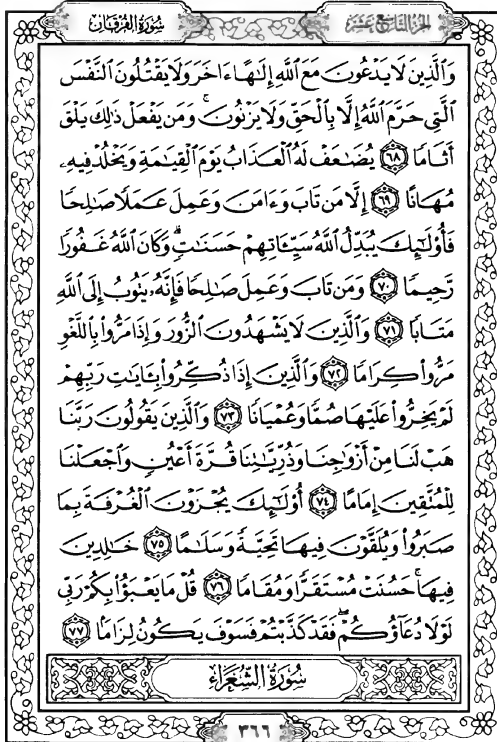 الجزء التاسع عشر
سورة الفرقان
وَالَّذِينَ لَا يَدْعُونَ مَعَ اللَّهِ إِلَٰهًا ءَاخَرَ وَلَا يَقْتُلُونَ النَّفْسَ
الَّتِي حَرَّمَ اللَّهُ إِلَّا بِالْحَقِّ وَلَا يَزْنُونَ ۚ وَمَن يَفْعَلْ ذَٰلِكَ يَلْقَ
أَثَامًا ٦٨ يُضَاعَفْ لَهُ الْعَذَابُ يَوْمَ الْقِيَامَةِ وَيَخْلُدْ فِيهِ
مُهَانًا ٦٩ إِلَّا مَن تَابَ وَءَامَنَ وَعَمِلَ عَمَلًا صَالِحًا
فَأُولَٰئِكَ يُبَدِّلُ اللَّهُ سَيِّئَاتِهِمْ حَسَنَاتٍ ۗ وَكَانَ اللَّهُ غَفُورًا
رَّحِيمًا ٧٠ وَمَن تَابَ وَعَمِلَ صَالِحًا فَإِنَّهُ يَتُوبُ إِلَى اللَّهِ
مَتَابًا ٧١ وَالَّذِينَ لَا يَشْهَدُونَ الزُّورَ وَإِذَا مَرُّوا بِاللَّغْوِ
مَرُّوا كِرَامًا ٧٢ وَالَّذِينَ إِذَا ذُكِّرُوا بِـَٔايَاتِ رَبِّهِمْ
لَمْ يَخِرُّوا عَلَيْهَا صُمًّا وَعُمْيَانًا ٧٣ وَالَّذِينَ يَقُولُونَ رَبَّنَا
هَبْ لَنَا مِنْ أَزْوَاجِنَا وَذُرِّيَّاتِنَا قُرَّةَ أَعْيُنٍ وَاجْعَلْنَا
لِلْمُتَّقِينَ إِمَامًا ٧٤ أُولَٰئِكَ يُجْزَوْنَ الْغُرْفَةَ بِمَا
صَبَرُوا وَيُلَقَّوْنَ فِيهَا تَحِيَّةً وَسَلَامًا ٧٥ خَالِدِينَ
فِيهَا ۚ حَسُنَتْ مُسْتَقَرًّا وَمُقَامًا ٧٦ قُلْ مَا يَعْبَؤُا بِكُمْ رَبِّي
لَوْلَا دُعَاؤُكُمْ ۖ فَقَدْ كَذَّبْتُمْ فَسَوْفَ يَكُونُ لِزَامًا ٧٧
سُورَةُ الشُّعَرَاءِ
٣٦٦